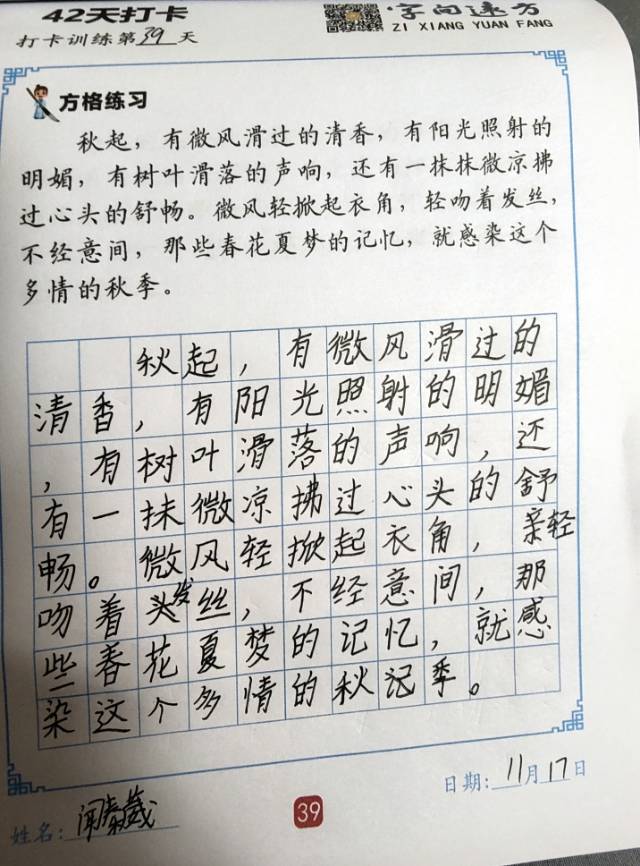 42天打卡
打卡训练第39天
字向速方
ZI XIANG YUAN FANG
方格练习
秋起，有微风滑过的清香，有阳光照射的
明媚，有树叶滑落的声响，还有一抹抹微凉拂
过心头的舒畅。微风轻掀起衣角，轻吻着发丝，
不经意间，那些春花夏梦的记忆，就感染这个
多情的秋季。
秋起，有微风滑过的
清香，有阳光照射的明媚
，有树叶滑落的声响，还
有一抹微凉拂过心头的舒
畅。微风轻掀起衣角，亲轻
吻着头发丝，不经意间，那
些春花夏梦的记忆，就感
染这个多情的秋记季。
日期：11月17日
39
姓名：